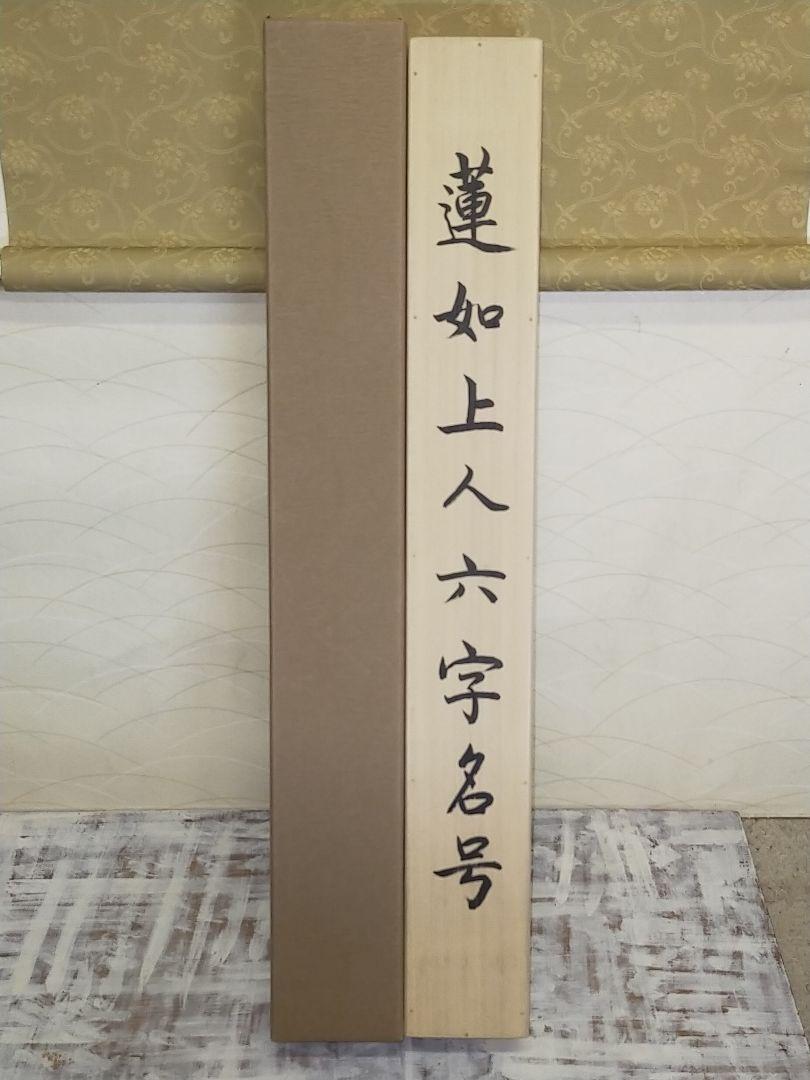 蓮如上人六字名号